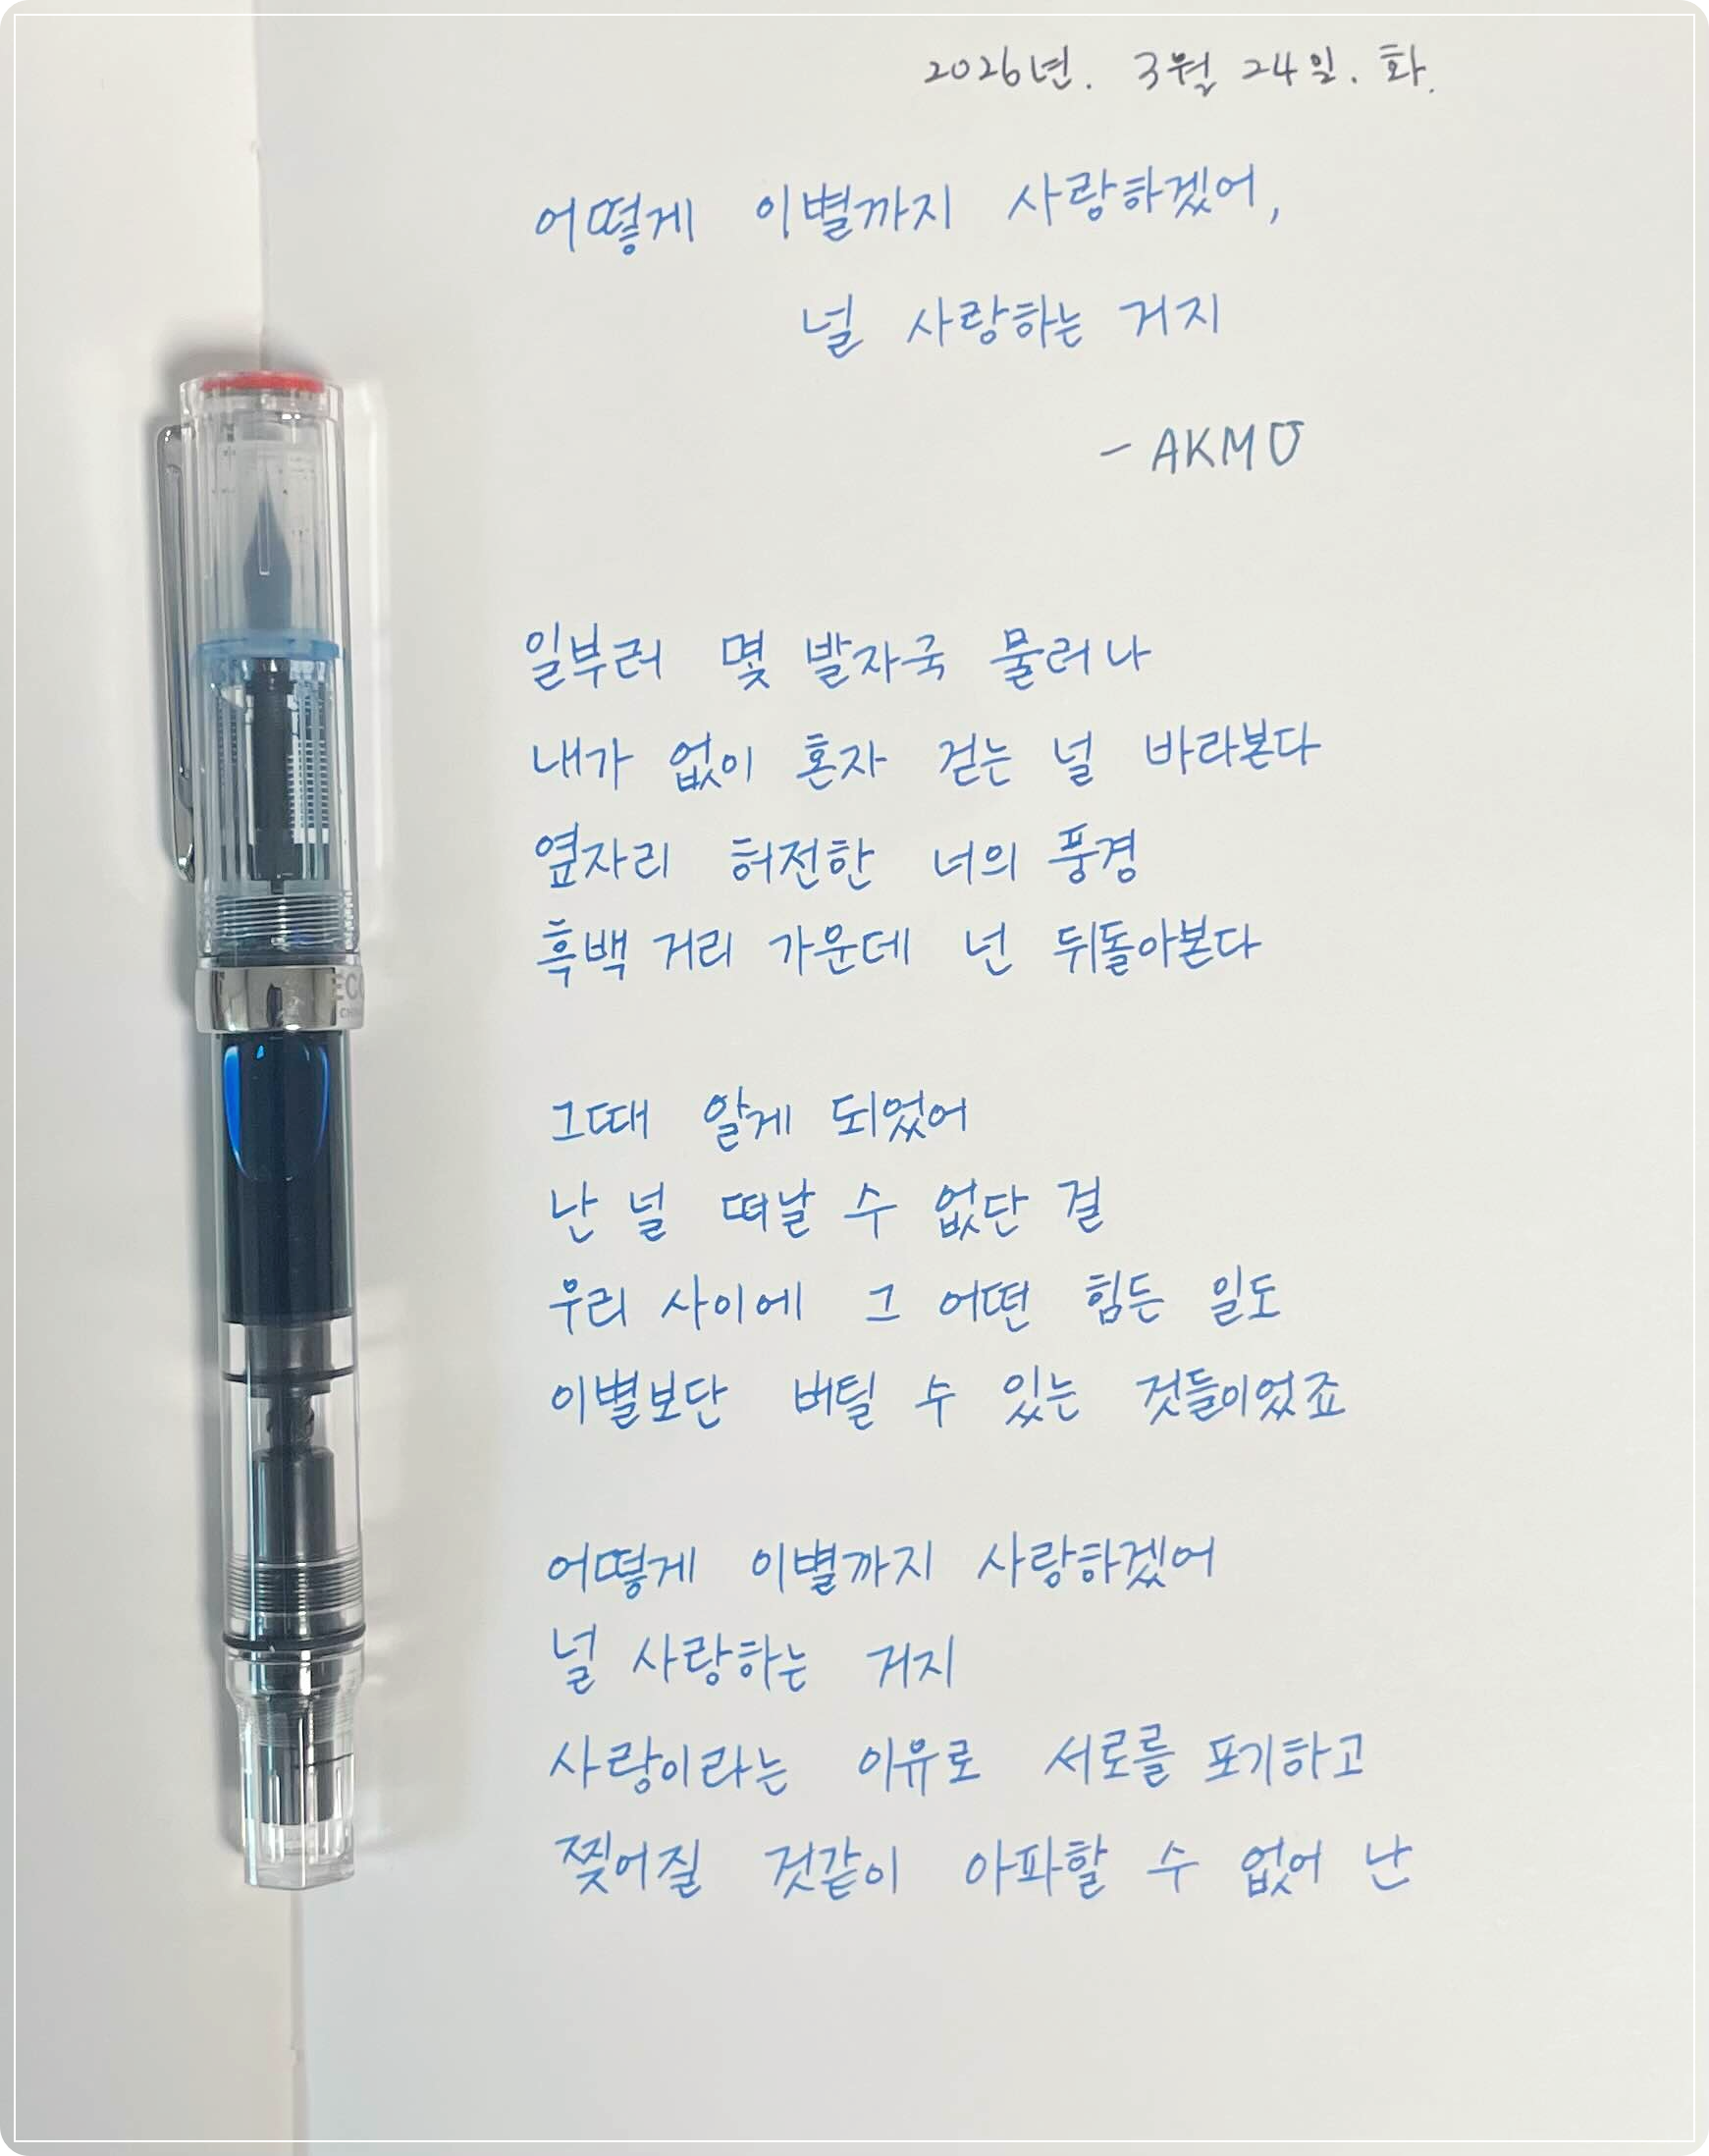 2026년. 3월 24일. 화.
어떻게 이별까지 사랑하겠어,
널 사랑하는 거지
- AKMU
일부러 몇 발자국 물러나
내가 없이 혼자 걷는 널 바라본다
옆자리 허전한 너의 풍경
흑백 거리 가운데 넌 뒤돌아본다
그때 알게 되었어
난 널 떠날 수 없단 걸
우리 사이에 그 어떤 힘든 일도
이별보단 버틸 수 있는 것들이었죠
어떻게 이별까지 사랑하겠어
널 사랑하는 거지
사랑이라는 이유로 서로를 포기하고
찢어질 것같이 아파할 수 없어 난